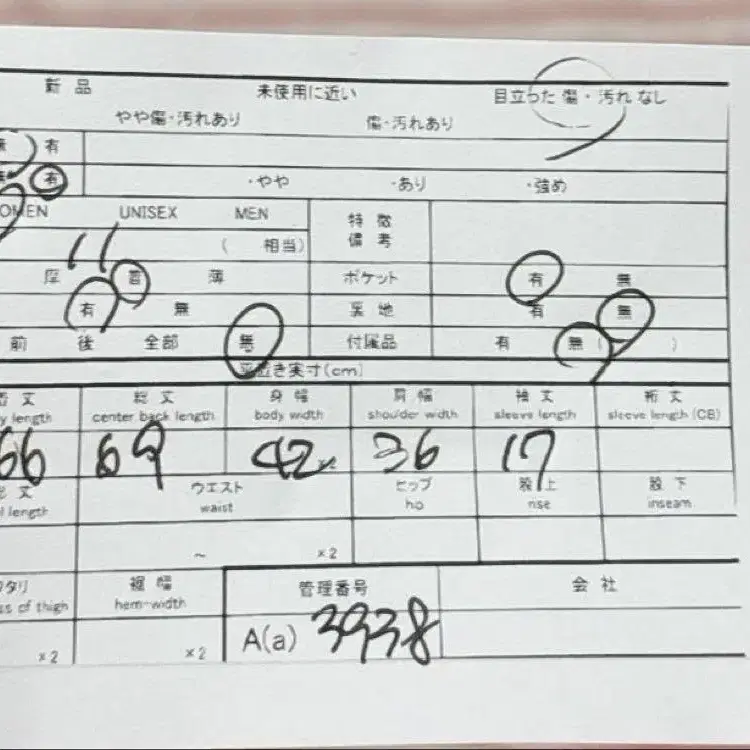 新品 未使用に近い 目立った傷・汚れなし
やや傷・汚れあり 傷・汚れあり
有
有 ・やや ・あり ・強め
OMEN UNISEX MEN 特徴
備考
11 ( 相当)
厚 普 薄 ポケット 有 無
有 無 裏地 有 無
前 後 全部 無 付属品 有 無 ( )
平置き実寸(cm)
着丈 総丈 身幅 肩幅 袖丈 裄丈
y length center back length body width shoulder width sleeve length sleeve length (CB)
66 69 42 36 17
総丈 ウエスト ヒップ 股上 股下
l length waist hip rise inseam
~ ×2
ワタリ 裾幅 管理番号 会社
ss of thigh hem-width
×2 ×2 A(a) 3938